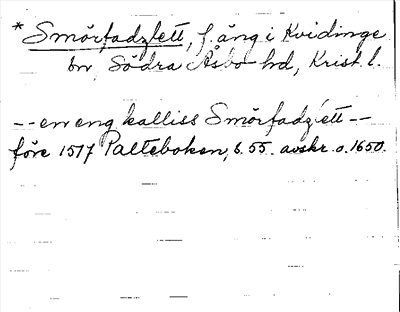 * Smörfadzlett, f. äng i Kvidinge
sn, Södra Åsbo hd, Krist. l.
-- en eng kalliss Smörfadzlett --
före 1517 Palteboken, s. 55. avskr. o. 1650.